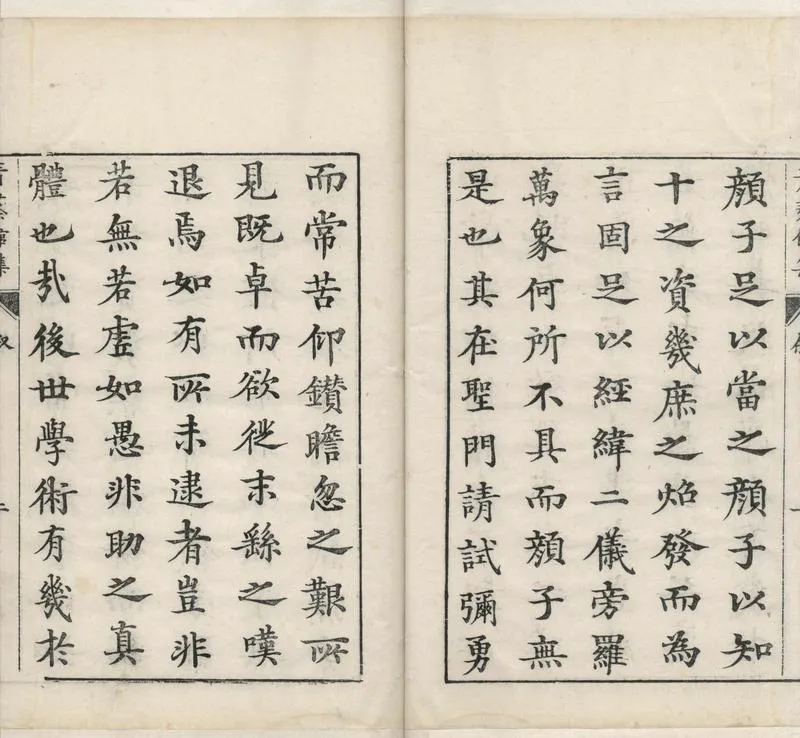 顔子足以當之顔子以知
十之資幾庶之焰發而為
言固足以經緯二儀旁羅
萬象何所不具而顔子無
是也其在聖門請試彌勇
而常苦仰鑚瞻忽之艱所
見既卓而欲從末繇之嘆
退焉如有所未逮者豈非
若無若虛如愚非助之真
體也哉後世學術有幾於